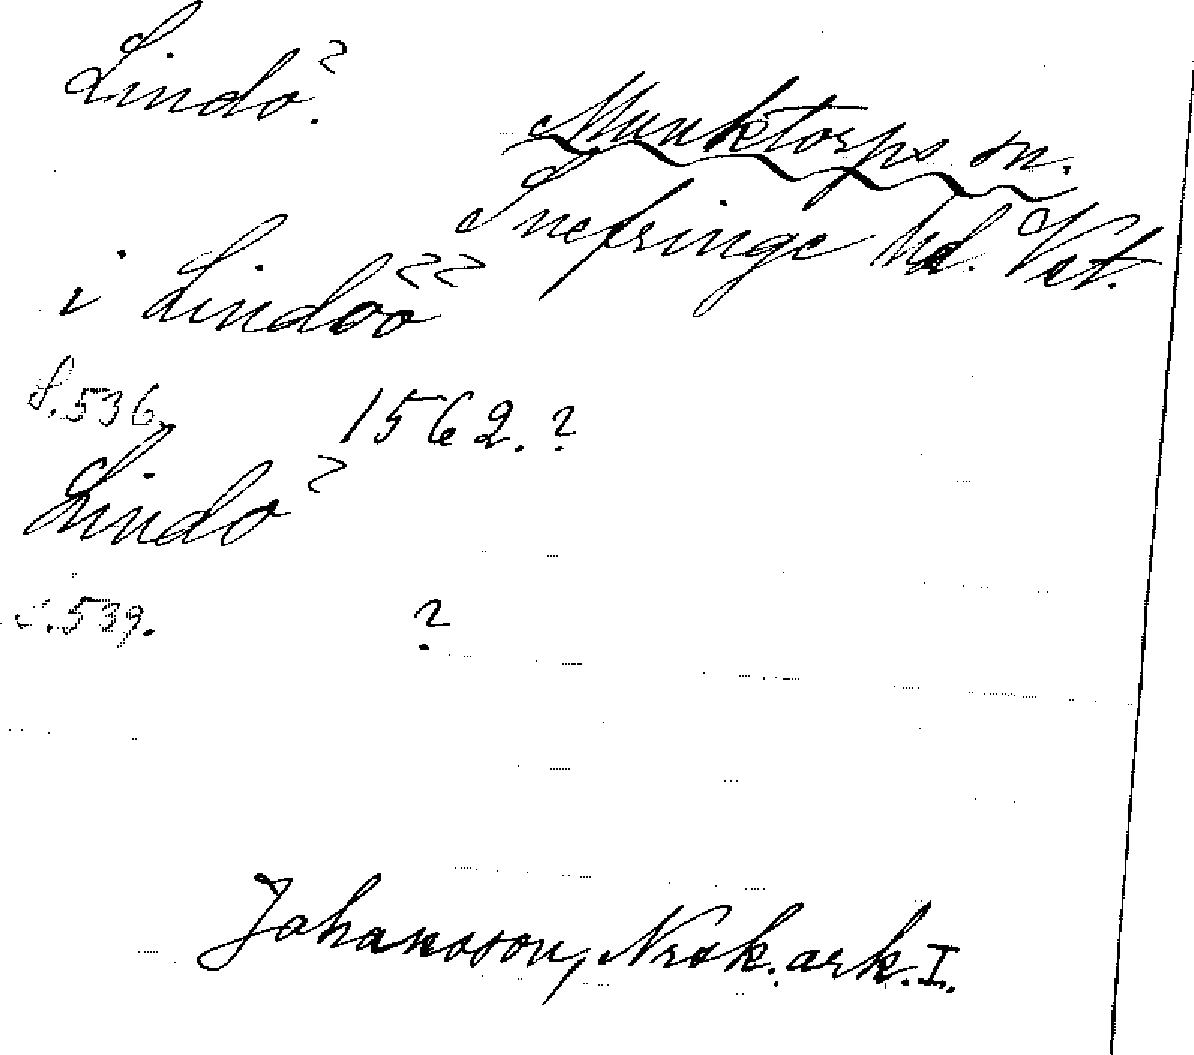 Lindo.?
Munktorps sn.
Snefringe hd. Vst.
i Lindoo??
s.536. 1562.?
Lindo?
s.539. ?
Johansson, Nrsk. ark. I.